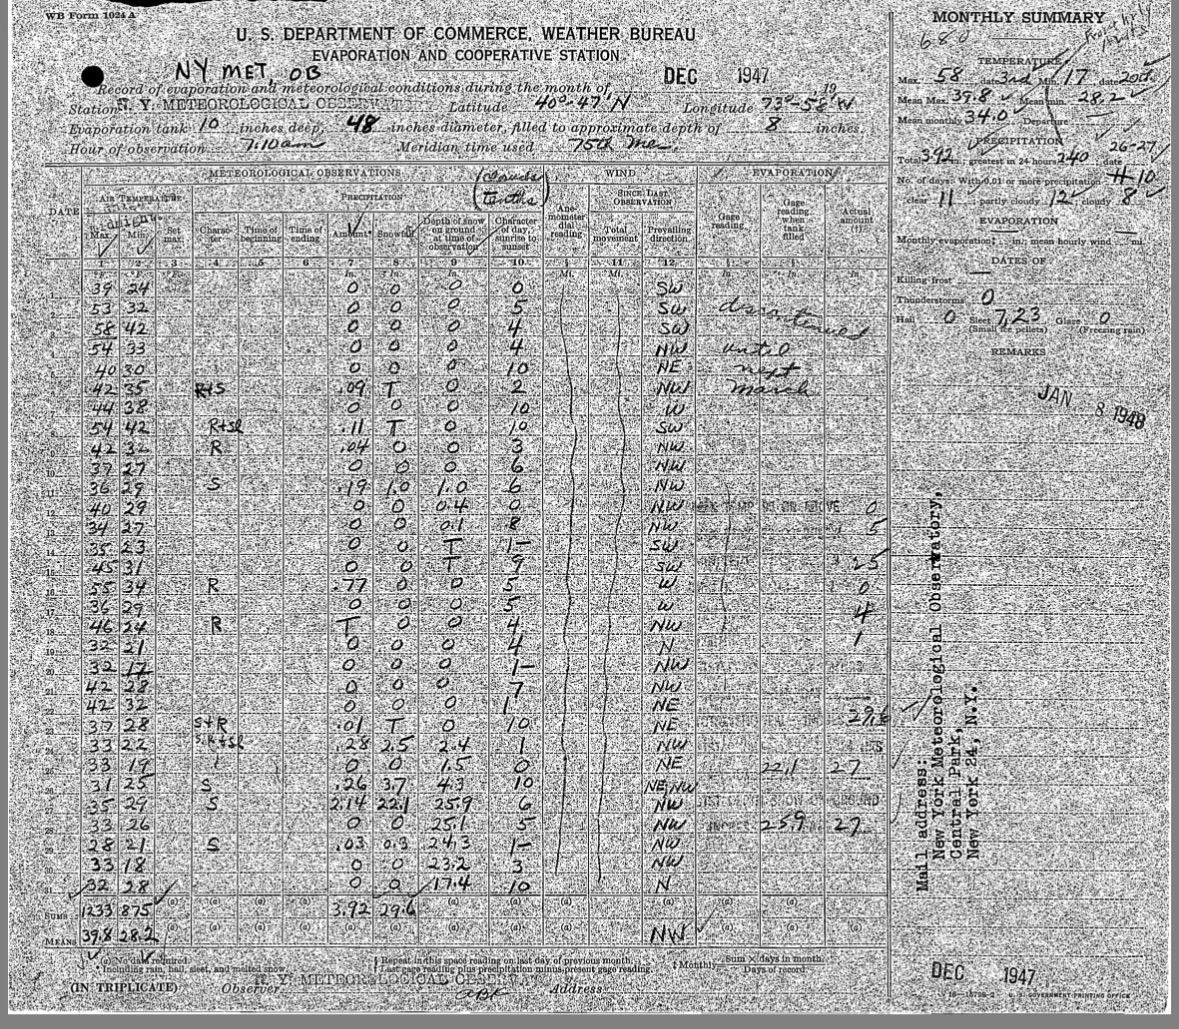 WB Form 1024 A
U. S. DEPARTMENT OF COMMERCE, WEATHER BUREAU
EVAPORATION AND COOPERATIVE STATION
NY MET. OB
DEC 1947
Record of evaporation and meteorological conditions during the month of , 19
Station N. Y. METEOROLOGICAL OBSERVAT Latitude 40°-47'N Longitude 73°-58'W
Evaporation tank 10 inches deep, 48 inches diameter, filled to approximate depth of 8 inches.
Hour of observation 7:10am Meridian time used 75th Mer.
METEOROLOGICAL OBSERVATIONS (Clouds tenths) WIND EVAPORATION
DATE AIR TEMPERATURE PRECIPITATION SINCE LAST OBSERVATION
Max. Min. Set max. Character Time of beginning Time of ending Amount Snowfall Depth of snow on ground at time of observation Character of day, sunrise to sunset Anemometer dial reading Total movement Prevailing direction Gage reading Gage reading when tank filled Actual amount
1 2 3 4 5 6 7 8 9 10 11 12
39 24 0 0 0 0 SW
53 32 0 0 0 5 SW discontinued
58 42 0 0 0 4 SW
54 33 0 0 0 4 NW until
40 30 0 0 0 10 NE next
42 35 R+S .09 T 0 2 NW March
44 38 0 0 0 10 W
54 42 R+Sl .11 T 0 10 SW
42 32 R .04 0 0 3 NW
37 27 0 0 0 6 NW
36 29 S .19 1.0 1.0 6 NW
40 29 0 0 0.4 0 NW 0
34 27 0 0 0.1 8 NW 5
35 23 0 0 T 1- SW
45 31 0 0 T 9 SW 25
55 34 R .77 0 0 5 W 0
36 29 0 0 0 5 W 4
46 24 R T 0 0 4 NW 1
32 21 0 0 0 4 N
32 17 0 0 0 1- NW
42 28 0 0 0 7 NW
42 32 0 0 0 1 NE 29.6
37 28 S+R .01 T 0 10 NE
33 22 S.R+Sl .28 2.5 2.4 1 NW
33 19 0 0 1.5 0 NE 22.1 27
31 25 S .26 3.7 4.3 10 NE,NW
35 29 S 2.14 22.1 25.9 6 NW
33 26 0 0 25.1 5 NW 25.9 27
28 21 S .03 0.3 24.3 1- NW
33 18 0 0 23.2 3 NW
32 28 0 0 17.4 10 N
SUMS 1233 875 (a) (a) (a) (a) 3.92 29.6 (a) (a) (a)
MEANS 39.8 28.2 (a) (a) (a) (a) (a) (a) (a) (a) (a) NW
(a) No data required.
*Including rain, hail, sleet, and melted snow.
Repeat in this space reading on last day of previous month.
Last gage reading plus precipitation minus present gage reading.
Monthly Sum × days in month. Days of record.
(IN TRIPLICATE) Observer N. Y. METEOROLOGICAL OBSERVAT Address
MONTHLY SUMMARY
680
TEMPERATURE
Max. 58 date 3rd Min. 17 date 20th
Mean Max. 39.8 Mean min. 28.2
Mean monthly 34.0 Departure
PRECIPITATION
26-27
Total 3.92 in.; greatest in 24 hours 2.40 date
No. of days: With 0.01 or more precipitation 10
clear 11 ; partly cloudy 12 ; cloudy 8
EVAPORATION
Monthly evaporation in; mean hourly wind mi.
DATES OF
Killing frost
Thunderstorms 0
Hail 0 Sleet 7,23 Glaze 0
(Small ice pellets) (Freezing rain)
REMARKS
JAN 8 1948
Mail address:
New York Meteorological Observatory,
Central Park,
New York 24, N.Y.
DEC 1947
U. S. GOVERNMENT PRINTING OFFICE